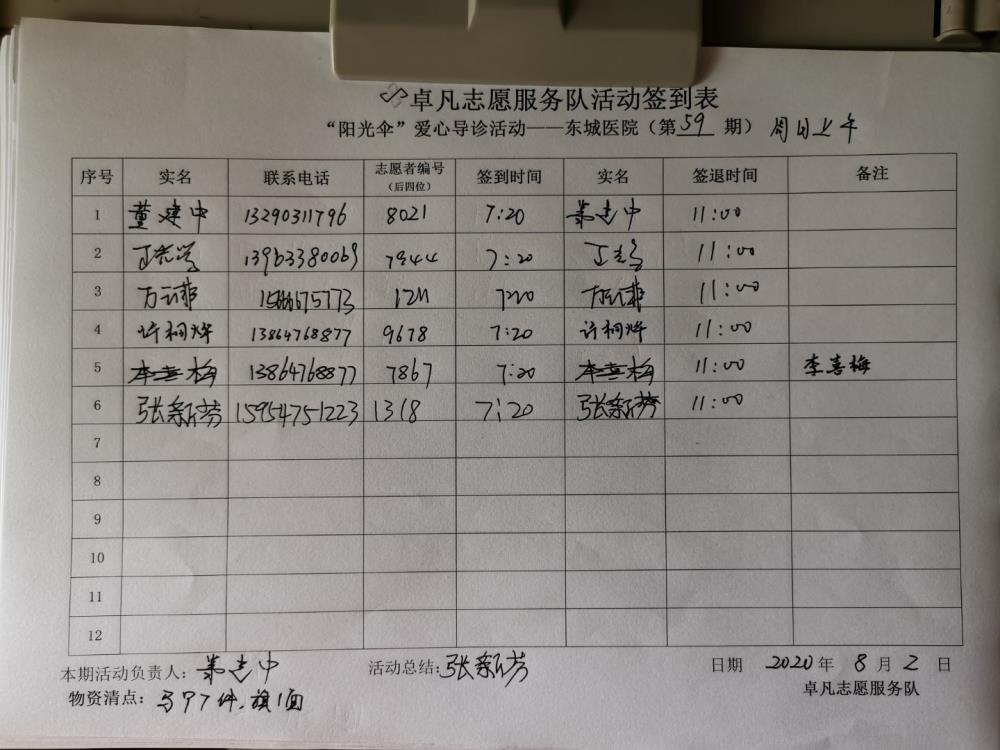 卓凡志愿服务队活动签到表
“阳光伞”爱心导诊活动——东城医院（第 59 期） 周日上午
序号 实名 联系电话 志愿者编号（后四位） 签到时间 实名 签退时间 备注
1 董建中 13290311796 8021 7:20 董建中 11:00
2 13963380069 7944 7:20 11:00
3 万云菲 7:20 万云菲 11:00
4 许柯烨 13864768877 9678 7:20 许柯烨 11:00
5 李喜梅 13864768877 7867 7:20 李喜梅 11:00 李喜梅
6 张新芬 15954751223 1318 7:20 张新芬 11:00
7
8
9
10
11
12
本期活动负责人：董建中 活动总结：张新芬 日期 2020 年 8 月 2 日
物资清点：马甲7件，旗1面 卓凡志愿服务队